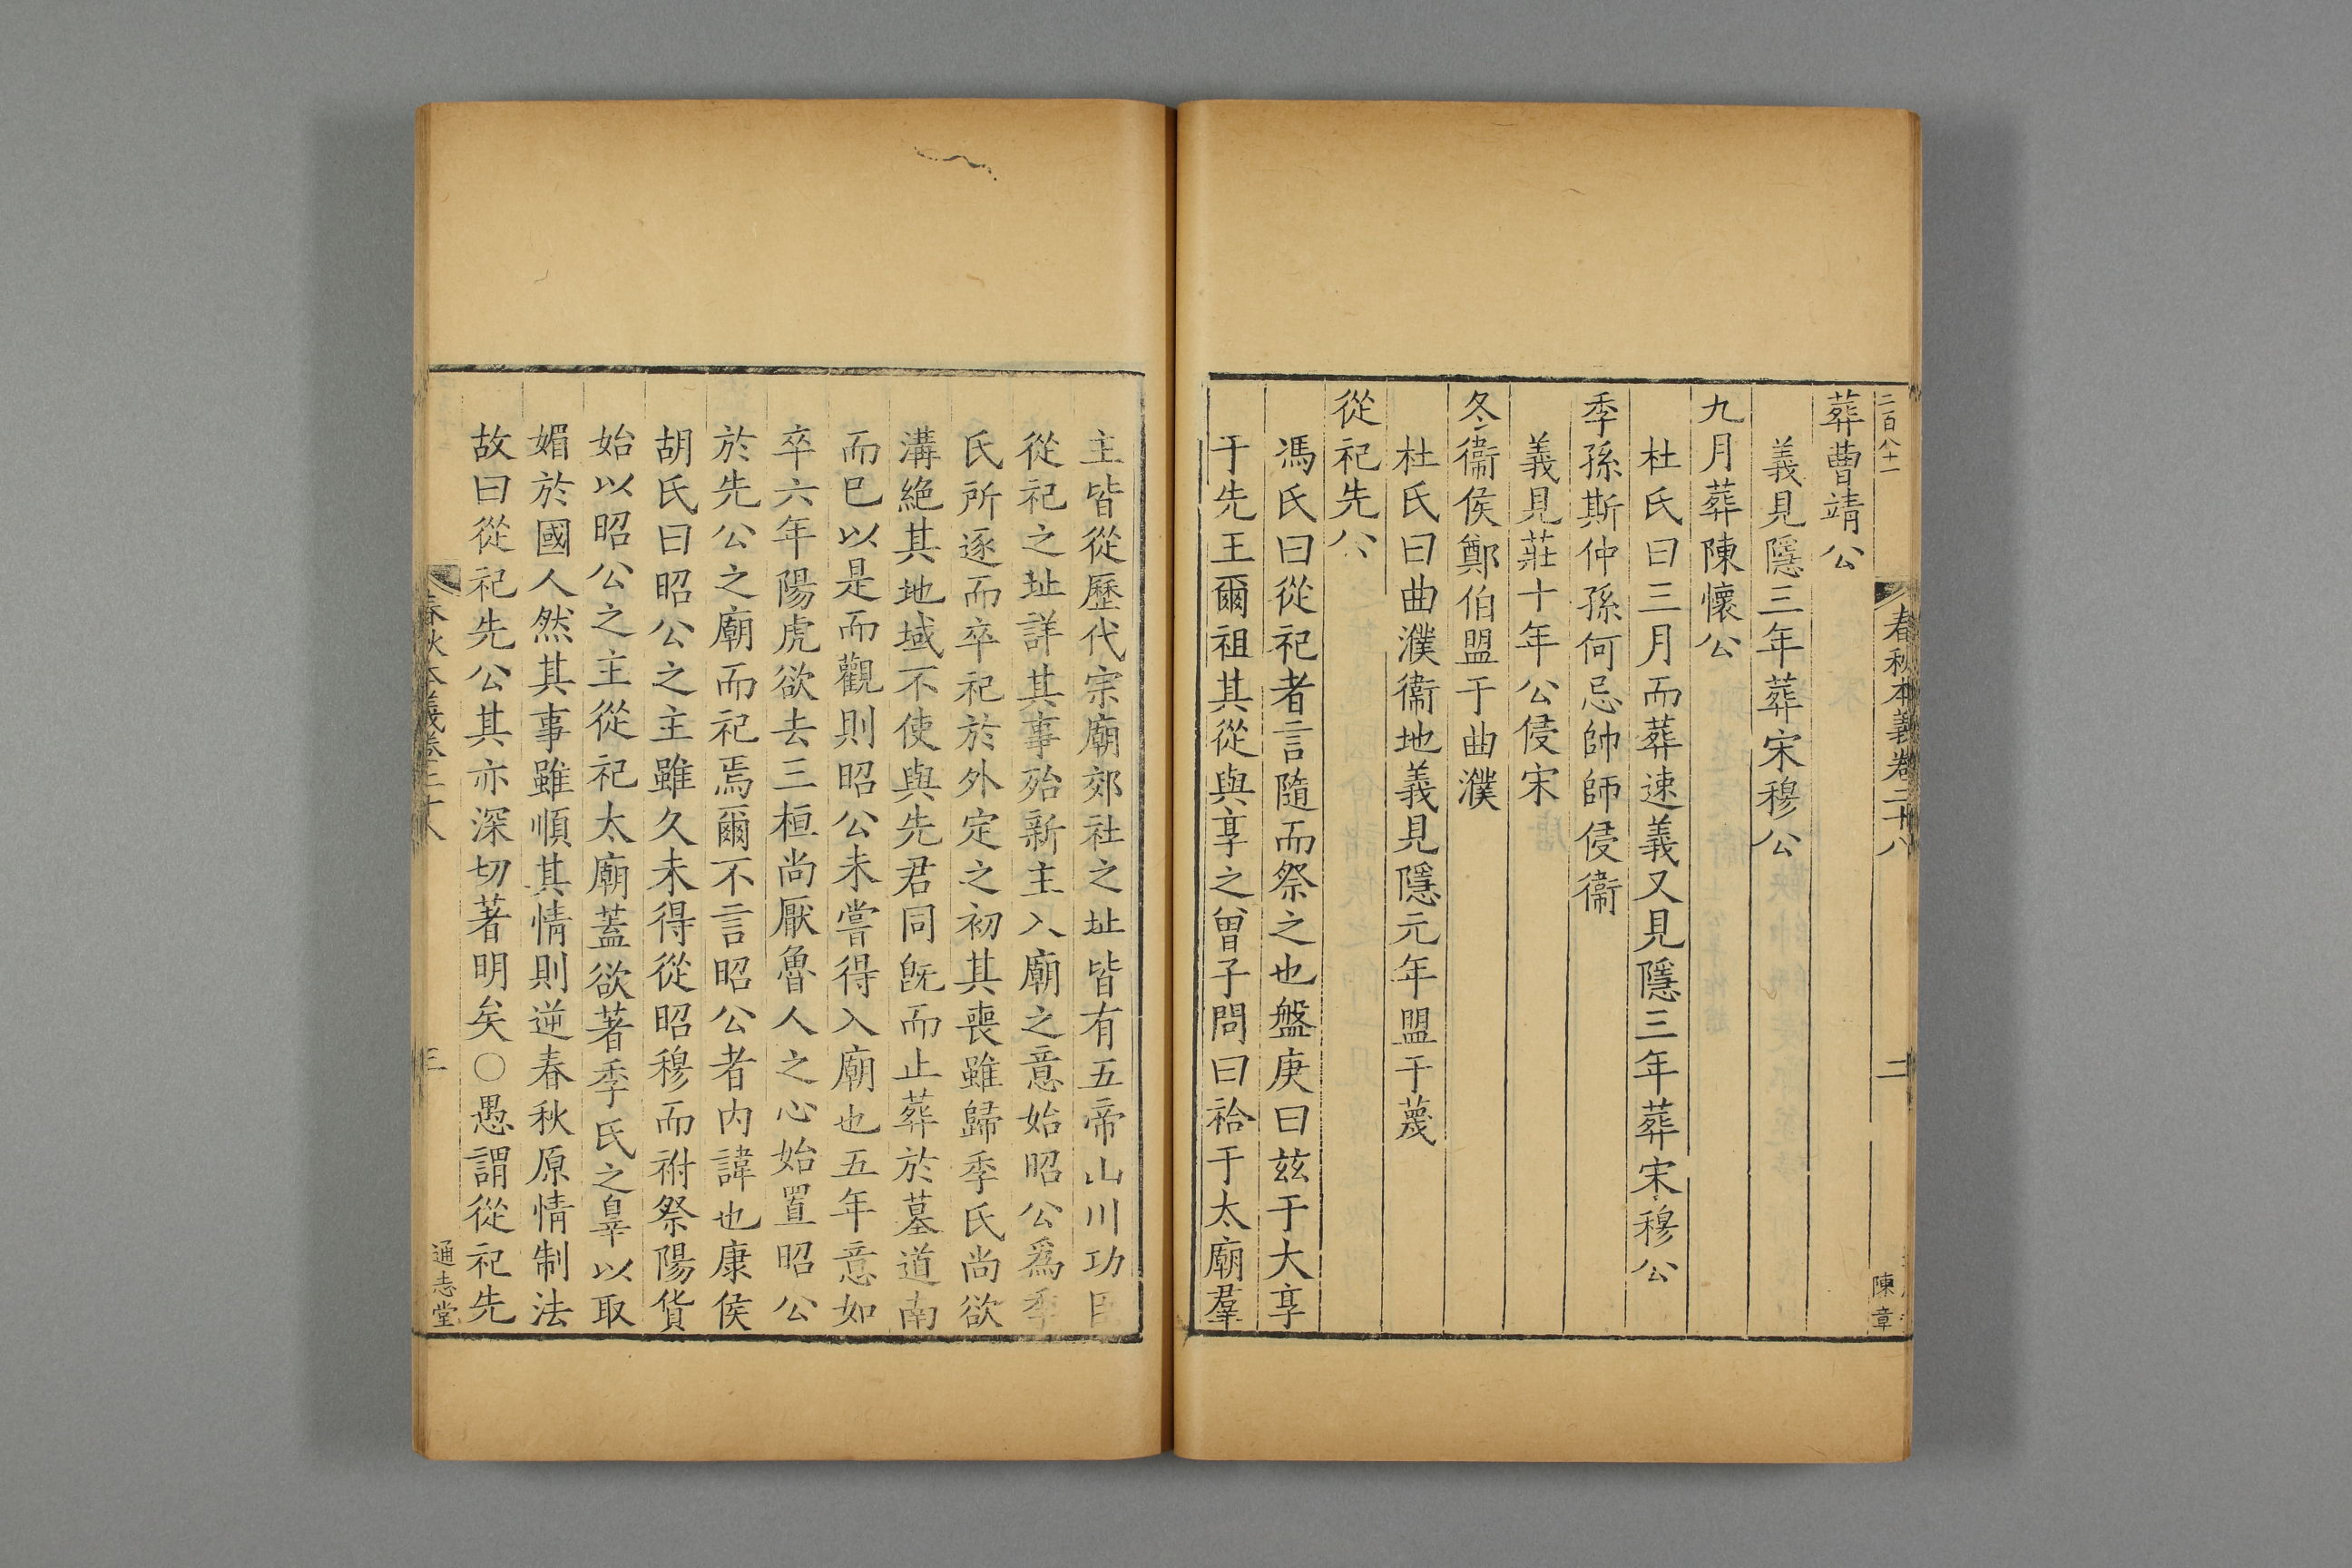 二百八十一
春秋本義卷二十八
二
陳章
葬曹靖公
義見隱三年葬宋穆公
九月葬陳懷公
杜氏曰三月而葬速義又見隱三年葬宋穆公
季孫斯仲孫何忌帥師侵衞
義見莊十年公侵宋
冬衞侯鄭伯盟于曲濮
杜氏曰曲濮衞地義見隱元年盟于蔑
從祀先公
馮氏曰從祀者言隨而祭之也盤庚曰兹于大享
于先王爾祖其從與享之曾子問曰祫于太廟羣
主皆從歷代宗廟郊社之址皆有五帝山川功臣
從祀之址詳其事殆新主入廟之意始昭公爲季
氏所逐而卒祀於外定之初其喪雖歸季氏尚欲
溝絕其地域不使與先君同旣而止葬於墓道南
而巳以是而觀則昭公未嘗得入廟也五年意如
卒六年陽虎欲去三桓尚厭魯人之心始置昭公
於先公之廟而祀焉爾不言昭公者内諱也康侯
胡氏曰昭公之主雖久未得從昭穆而祔祭陽貨
始以昭公之主從祀太廟蓋欲著季氏之辠以取
媚於國人然其事雖順其情則逆春秋原情制法
故曰從祀先公其亦深切著明矣○愚謂從祀先
春秋本義卷二十八
三
通志堂